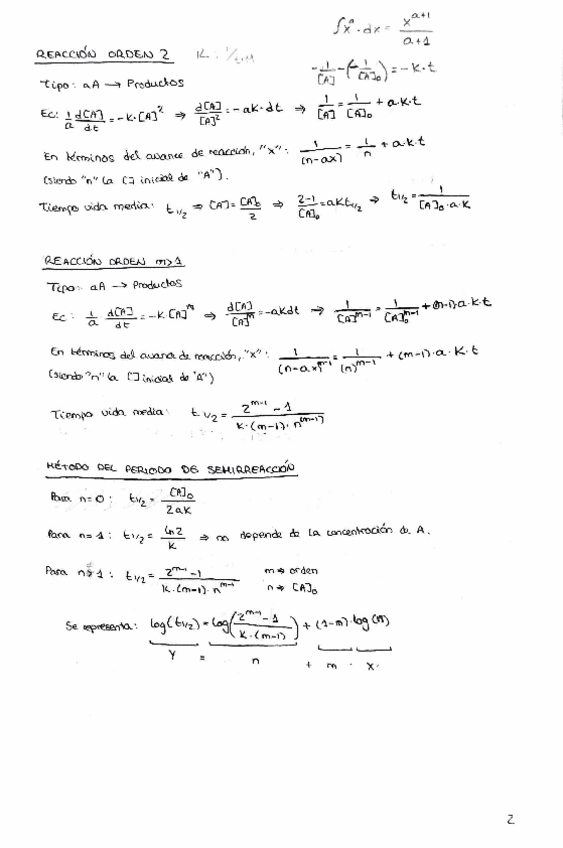 ∫x^a · dx = x^(a+1)/(a+1)
REACCIÓN ORDEN 2
-1/[A] - (-1/[A]₀) = -k·t
Tipo: aA → Productos
Ec: 1/a d[A]/dt = -k·[A]² ⇒ d[A]/[A]² = -ak·dt ⇒ 1/[A] = 1/[A]₀ + a·k·t
En términos del avance de reacción, "x": 1/(n-ax) = 1/n + a·k·t
(siendo "n" la [] inicial de "A").
Tiempo vida media: t1/2 ⇒ [A] = [A]₀/2 ⇒ (2-1)/[A]₀ = akt1/2 ⇒ t1/2 = 1/([A]₀·a·k)
REACCIÓN ORDEN m>1
Tipo: aA → Productos
Ec: 1/a · d[A]/dt = -k·[A]^m ⇒ d[A]/[A]^m = -akdt ⇒ 1/[A]^(m-1) = 1/[A]₀^(m-1) + (m-1)·a·k·t
En términos del avance de reacción, "x": 1/(n-ax)^(m-1) = 1/(n)^(m-1) + (m-1)·a·k·t
(siendo "n" la [] inicial de "A")
Tiempo vida media: t1/2 = (2^(m-1) - 1)/(k·(m-1)·n^(m-1))
MÉTODO DEL PERIODO DE SEMIRREACCIÓN
Para n=0: t1/2 = [A]₀/2ak
Para n=1: t1/2 = ln2/k ⇒ no depende de la concentración de A.
Para n>1: t1/2 = (2^(m-1) - 1)/(k·(m-1)·n^(m-1)) m ⇒ orden
n ⇒ [A]₀
Se representa: log(t1/2) = log((2^(m-1) - 1)/(k·(m-1))) + (1-m)·log(n)
Y = n + m · x
2